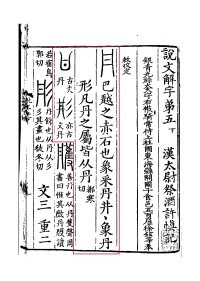 說文解字弟五 下
漢太尉祭酒許慎記
銀青光祿大夫守右散騎常侍上柱國東海縣開國子食邑五百戶臣徐鉉等奉
敕校定
巴越之赤石也象采丹井、象丹
形凡丹之屬皆从丹 都寒切
古文丹
亦古文丹
善丹也从丹蒦聲周
書曰惟其敿丹雘讀
若隺烏
郭切
丹飾也从丹从彡
彡其畫也徒冬切
文三 重二